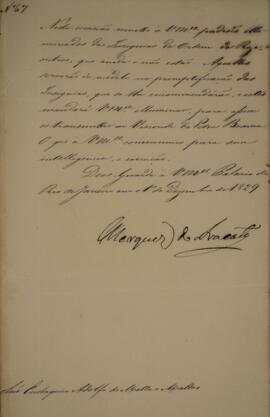 Nº 67
Nesta occasião remetto a V Mce padrões illu-
minados das Insignias da Ordem da Roza, e
outros, que ainda o não estão. Aquelles
servirão de modelo na promptificação das
Insignias, que se lhe encommendárão, e estes
mandará V Mce illuminar, para assim
os transmittir ao Visconde da Pedra Branca
O que a V Mce communico para sua
intelligencia, e execução.
Deos Guarde a V Mce Palacio do
Rio de Janeiro em 1º de Dezembro de 1829
Marquez de Aracaty
Snr Eustaquio Adolfo de Mello e Mattos